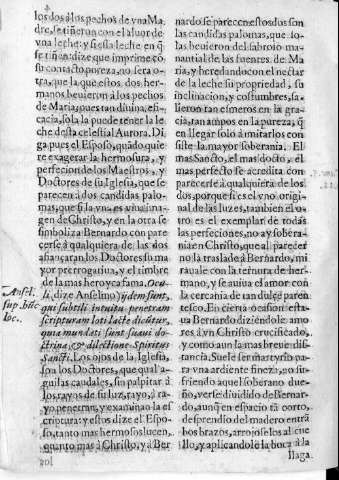 los dos à los pechos de vna Ma
dre, se tiñeron con el aluor de
vna leche: y si esta leche en q̃
se tiñan dize que imprime cõ
su contacto pureza, no será o-
tra, que la que estos dos her-
manos beuieron à los pechos
de Maria, pues tan diuina, efi-
cacia, sola la puede tener la le
che desta celestial Aurora. Di
ga pues el Esposo, quãdo quie
re exagerar la hermosura, y
perfecion de los Maestros, y
Doctores de su Iglesia, que se
parecen à dos candidas palo-
mas, que si la vna es viua ima-
gen de Christo, y en la otra se
simboliza Bernardo con pare-
cerse à qualquiera de las dos
afiançaran los Doctores su ma
yor prerrogatiua, y el timbre
de la mas heroyca fama. Ocu-
li, (dize Anselmo) ijdem sunt,
qui subtili intuitu penetrant
scripturam loti lacte dicutur,
quia mundati sunt suaui do-
ctrina, & dilectione Spiritus
Sancti. Los ojos de la Iglesia,
son los Doctores, que qual a-
guilas caudales, sin palpitar à
los rayos de su luz, rayo, à ra-
yo penetran, y examinan la es
criptura: y estos dize el Espo-
so, tanto mas hermosos lucen,
quanto mas à Christo, y à Ber
Ansel.
sup. hũc
loc.
nardo se parecen estos dos son
las candidas palomas, que so-
las beuieron del sabroso ma-
nantial, de las fuentes de Ma-
ria, y heredando con el nectar
de la leche su propriedad, su
inclinacion, y costumbres, sa-
lieron tan esmeros en la gra-
cia, tan ampos en la pureza, q̃
en llegar solo à imitarlos con
siste la mayor soberania. El
mas Sancto, el mas docto, el
mas perfecto se acredita con
parecerse à qualquiera de los
dos, porque si es el vno origi-
nal de las luzes, tambien el o-
tro es el exemplar de todas
las perfeciones, no ay sobera-
nia en Christo, que al parecer
no la traslade à Bernardo, mi-
rauale con la ternura de her-
mano, y se auiua el amor con
la cercania de tan dulce paren
tesco. En cierta ocasion esta-
ua Bernardo diziendole amo-
res à vn Christo crucificado,
y como aun la mas breue dis-
tancia, suele ser martyrio pa-
ra vna ardiente fineza, no su-
friendo aquel soberano due-
ño, verse diuidido de Bernar-
do, aunq̃ en espacio tã corto,
desprendio del madero entrã
bos brazos, arrojose los al cue
llo, y aplicandole la boca à la
llaga.